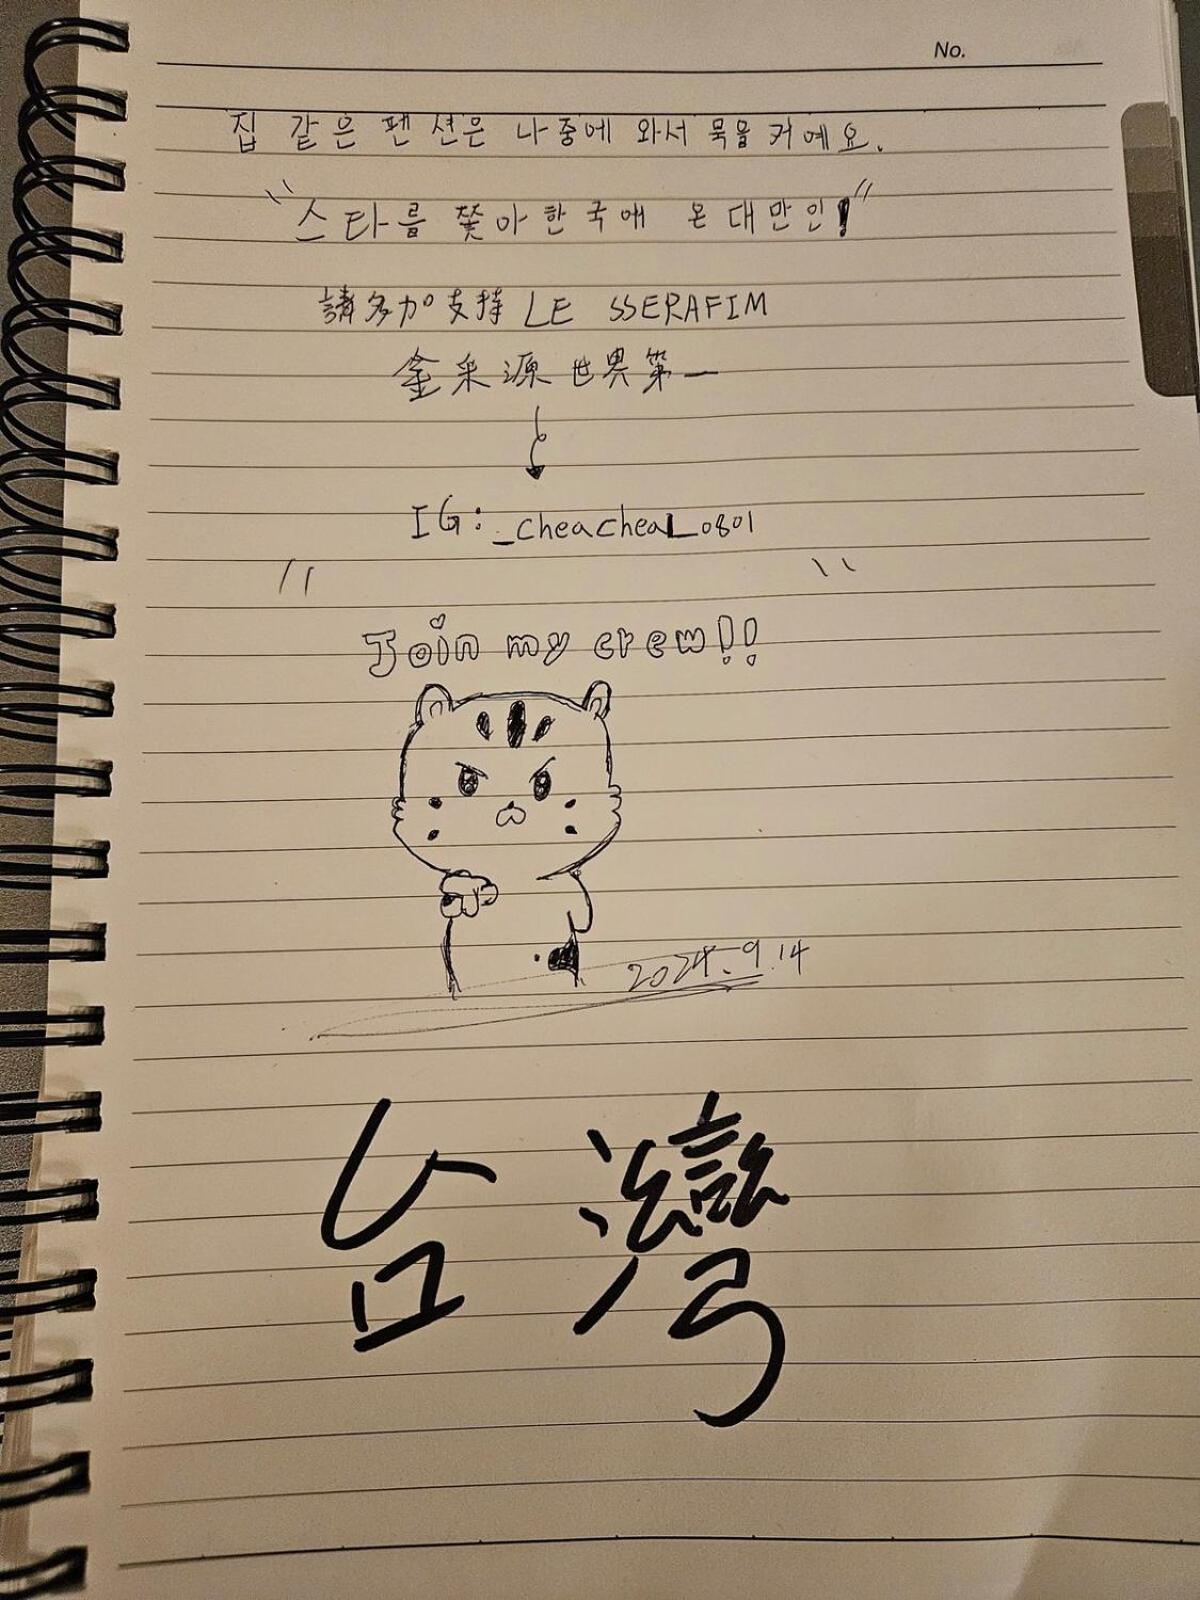 No.
집 같은 펜션은 나중에 와서 묵을 커예요.
"스타를 쫓아 한국애 온 대만인!"
請多加支持 LE SSERAFIM
金采源世界第一
IG: _cheacheal_0801
"Join my crew!!"
2024.9.14
台灣